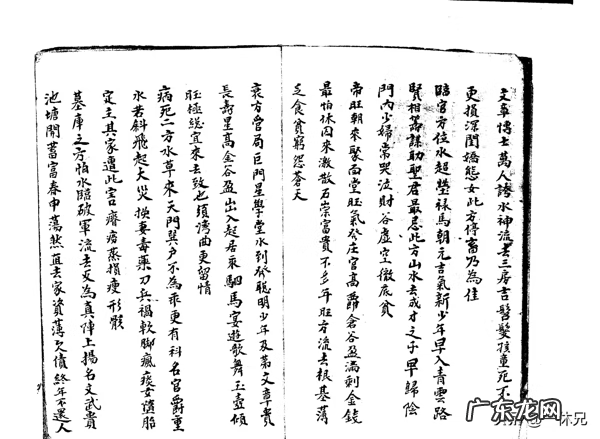 文章博士萬人誇水神流去三房吉髫髮孩童死不
更損深閨嬌態女此方停蓄乃為佳
臨官方位水超堂祿馬朝元吉氣新少年早入青雲路
賢相籌謀助聖君最忌此方山水去成才之子早歸陰
門內少婦常哭泣財谷虛空徹底貧
帝旺朝來聚面堂旺氣發庄官高爵倉谷盈滿剩金錢
最怕休囚來激散石崇富貴不多年旺方流去根基薄
乏食貧窮怨蒼天
衰方管局巨門星學堂水到發聰明少年及第文章貴
長壽星高金谷盈出入起居乘駟馬宴遊歌舞玉壺傾
旺極總宜來去致也須湾曲更留情
病死二方水草來天門巽戶不為乖更有科名官爵重
水若斜飛起大災換妻毒藥刀兵禍軟腳瘋痰女墮胎
定主其家遭此害癆瘵蒸損瘦形骸
墓庫之方怕水臨破軍流去反為真陣上揚名文武貴
池塘開蓄富春申蕩然直去家資薄欠債終年不還人
休兄
广东龙网